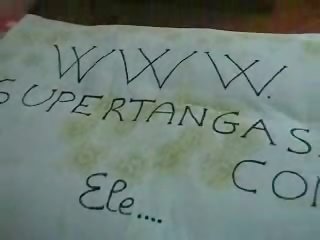 WWW.
SUPERTANGAS.
CON
Ele....